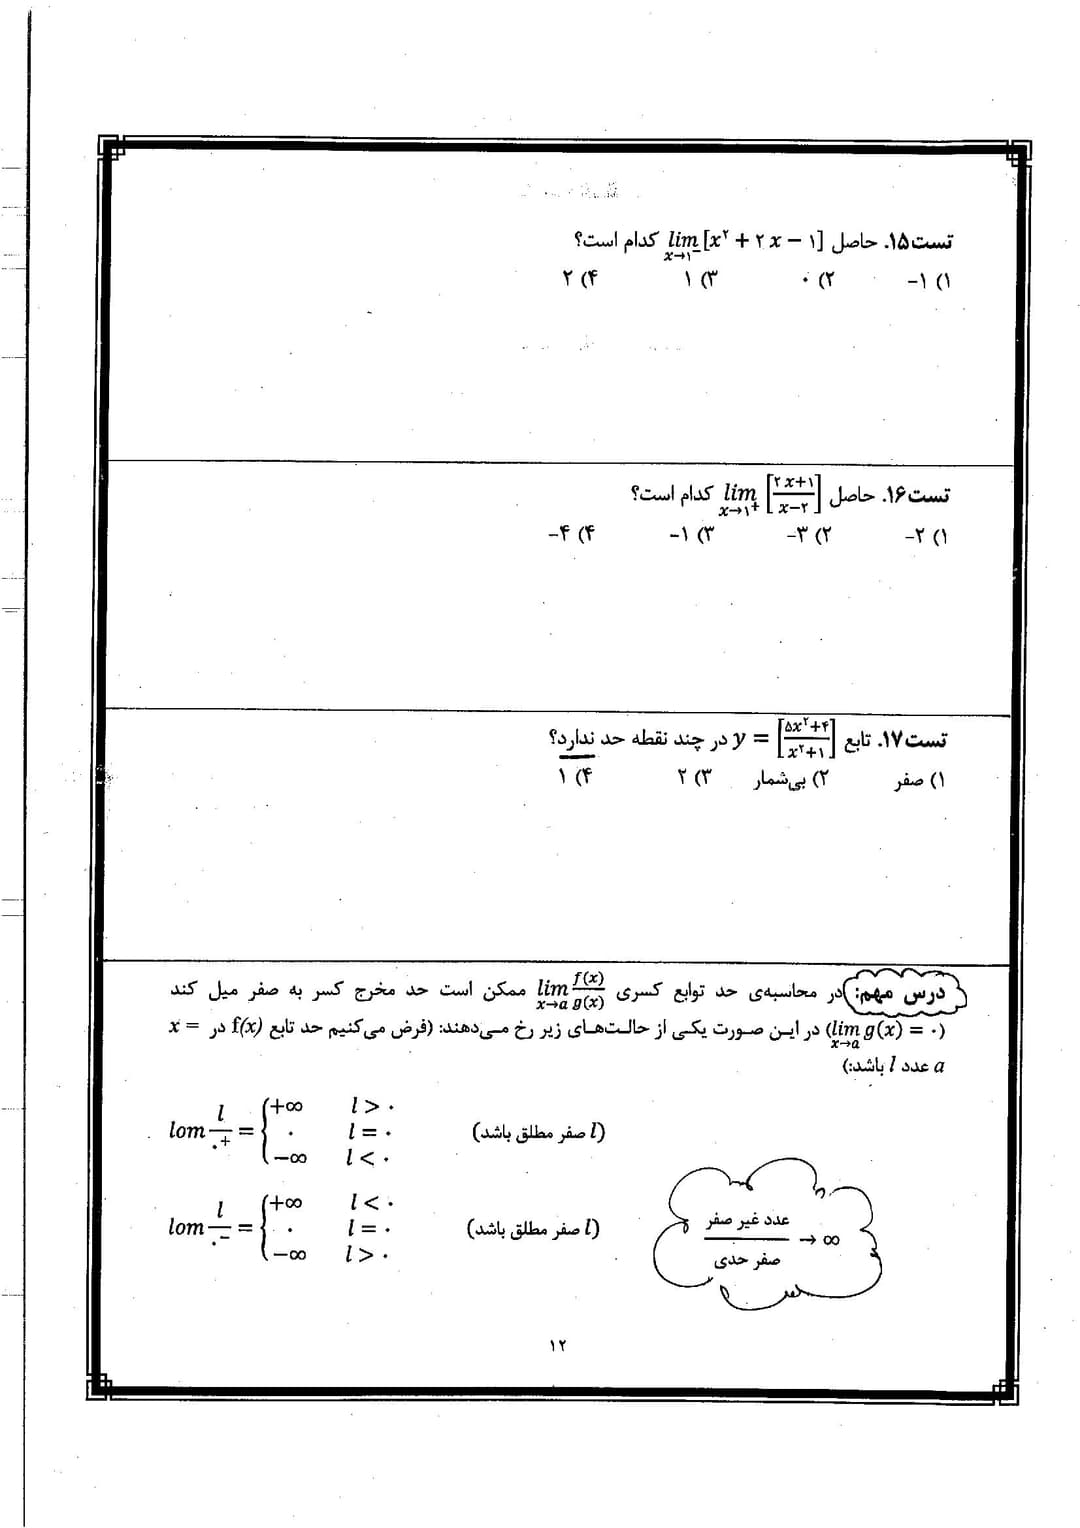 تست۱۵. حاصل lim x→۱⁻ [x² + ۲x − ۱] کدام است؟
۱) ۱− ۲) ۰ ۳) ۱ ۴) ۲
تست۱۶. حاصل lim x→۱⁺ [(۲x+۱)/(x−۲)] کدام است؟
۱) ۲− ۲) ۳− ۳) ۱− ۴) ۴−
تست۱۷. تابع y = [(۵x²+۴)/(x²+۱)] در چند نقطه حد ندارد؟
۱) صفر ۲) بی‌شمار ۳) ۲ ۴) ۱
درس مهم: در محاسبه‌ی حد توابع کسری lim x→a f(x)/g(x) ممکن است حد مخرج کسر به صفر میل کند
(lim x→a g(x) = ۰) در این صورت یکی از حالت‌های زیر رخ می‌دهند: (فرض می‌کنیم حد تابع f(x) در x =
a عدد l باشد:)
+∞ l > ۰
lom l/۰⁺ = { ۰ l = ۰ (l صفر مطلق باشد)
−∞ l < ۰
+∞ l < ۰
lom l/۰⁻ = { ۰ l = ۰ (l صفر مطلق باشد)
−∞ l > ۰
عدد غیر صفر
→ ∞
صفر حدی
۱۲